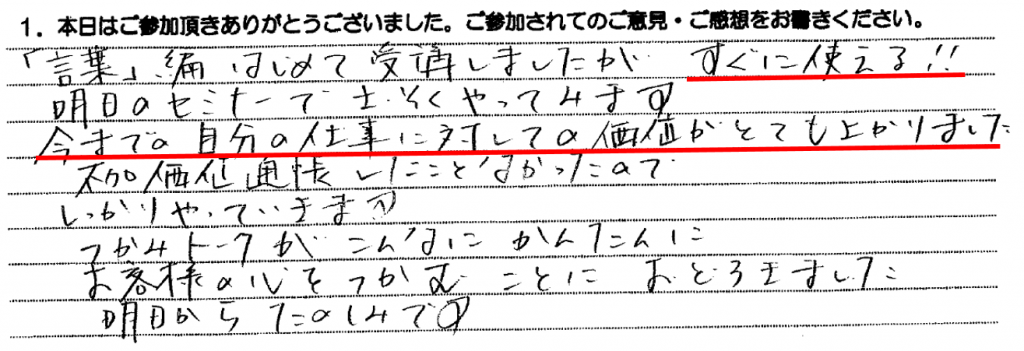 1. 本日はご参加頂きありがとうございました。ご参加されてのご意見・ご感想をお書きください。
「言葉」編 はじめて 受講しましたが すぐに使える!!
明日のセミナーで さっそく やってみます
今までの 自分の仕事に対しての価値がとても上がりました
価値通帳 したことなかったので
しっかりやっていきます
つかみトークが こんなに かんたんに
お客様の心を つかむ ことに おどろきました
明日から たのしみです